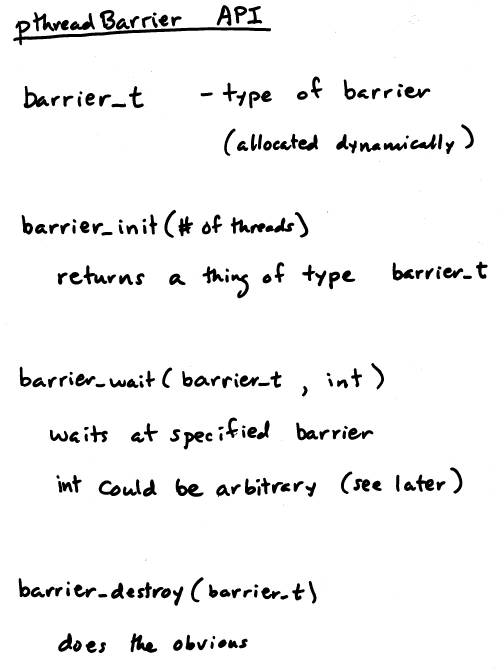 pthreadBarrier API
barrier_t - type of barrier
(allocated dynamically)
barrier_init(# of threads)
returns a thing of type barrier_t
barrier_wait(barrier_t, int)
waits at specified barrier
int could be arbitrary (see later)
barrier_destroy(barrier_t)
does the obvious